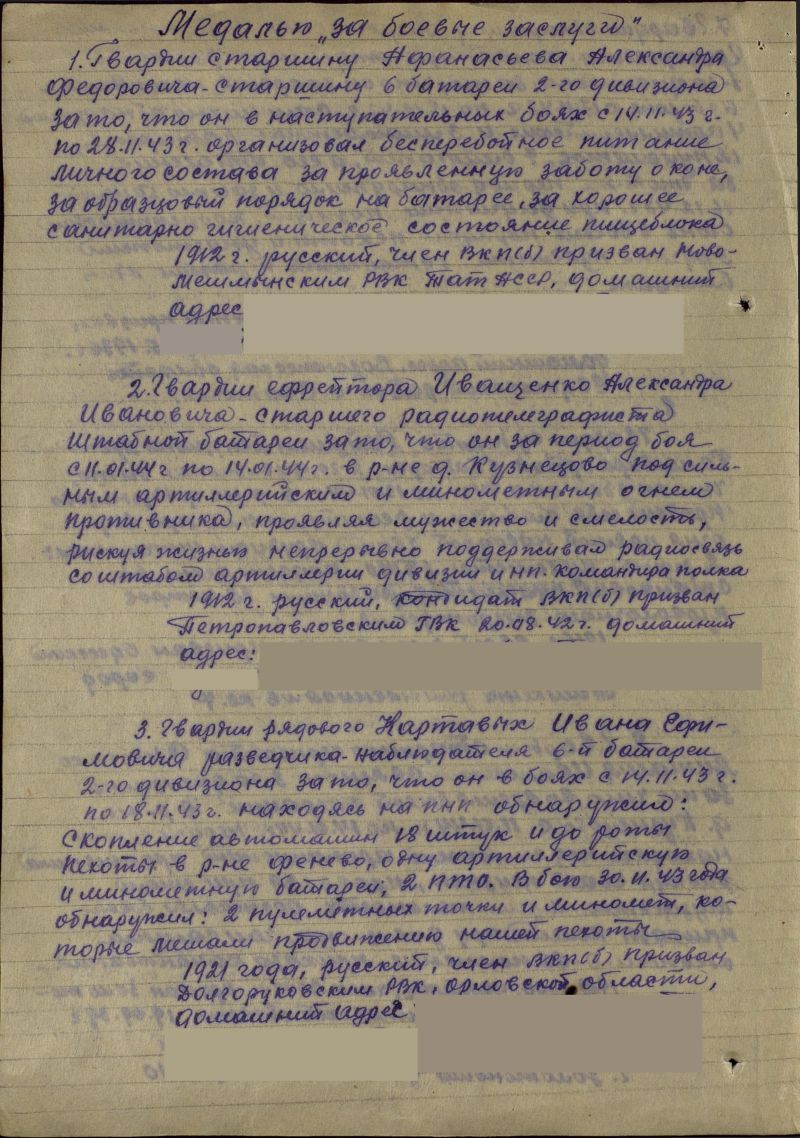 Медалью „За боевые заслуги"
1. Гвардии старшину Афанасьева Александра
Федоровича - старшину 6 батареи 2-го дивизиона
за то, что он в наступательных боях с 14.11.43 г.
по 28.11.43 г. организовал бесперебойное питание
личного состава за проявленную заботу о коне,
за образцовый порядок на батарее, за хорошее
санитарно гигиеническое состояние пищеблока
1912 г. русский, член ВКП(б) призван Ново-
Мешминским РВК ТатАССР, домашний
адрес
2. Гвардии ефрейтора Иващенко Александра
Ивановича - старшего радиотелеграфиста
штабной батареи за то, что он за период боя
с 11.01.44 г по 14.01.44 г. в р-не д. Кузнецово под силь-
ным артиллерийским и минометным огнем
противника, проявляя мужество и смелость,
рискуя жизнью непрерывно поддерживал радиосвязь
со штабом артиллерии дивизии и нп. командира полка
1912 г. русский, кандидат ВКП(б) призван
Петропавловским ГВК 20.08.42 г. домашний
адрес:
3. Гвардии рядового Нартавых Ивана Ефи-
мовича разведчика-наблюдателя 6-й батареи
2-го дивизиона за то, что он в боях с 14.11.43 г.
по 18.11.43 г. находясь на ПНП обнаружил:
Скопление автомашин 18 штук и до роты
пехоты в р-не Фенево, одну артиллерийскую
и минометную батареи, 2 ПТО. В бою 30.11.43 года
обнаружил: 2 пулемётных точки и миномет, ко-
торые мешали продвижению нашей пехоты
1921 года, русский, член ВКП(б) призван
Долгоруковским РВК, Орловской области,
домашний адрес